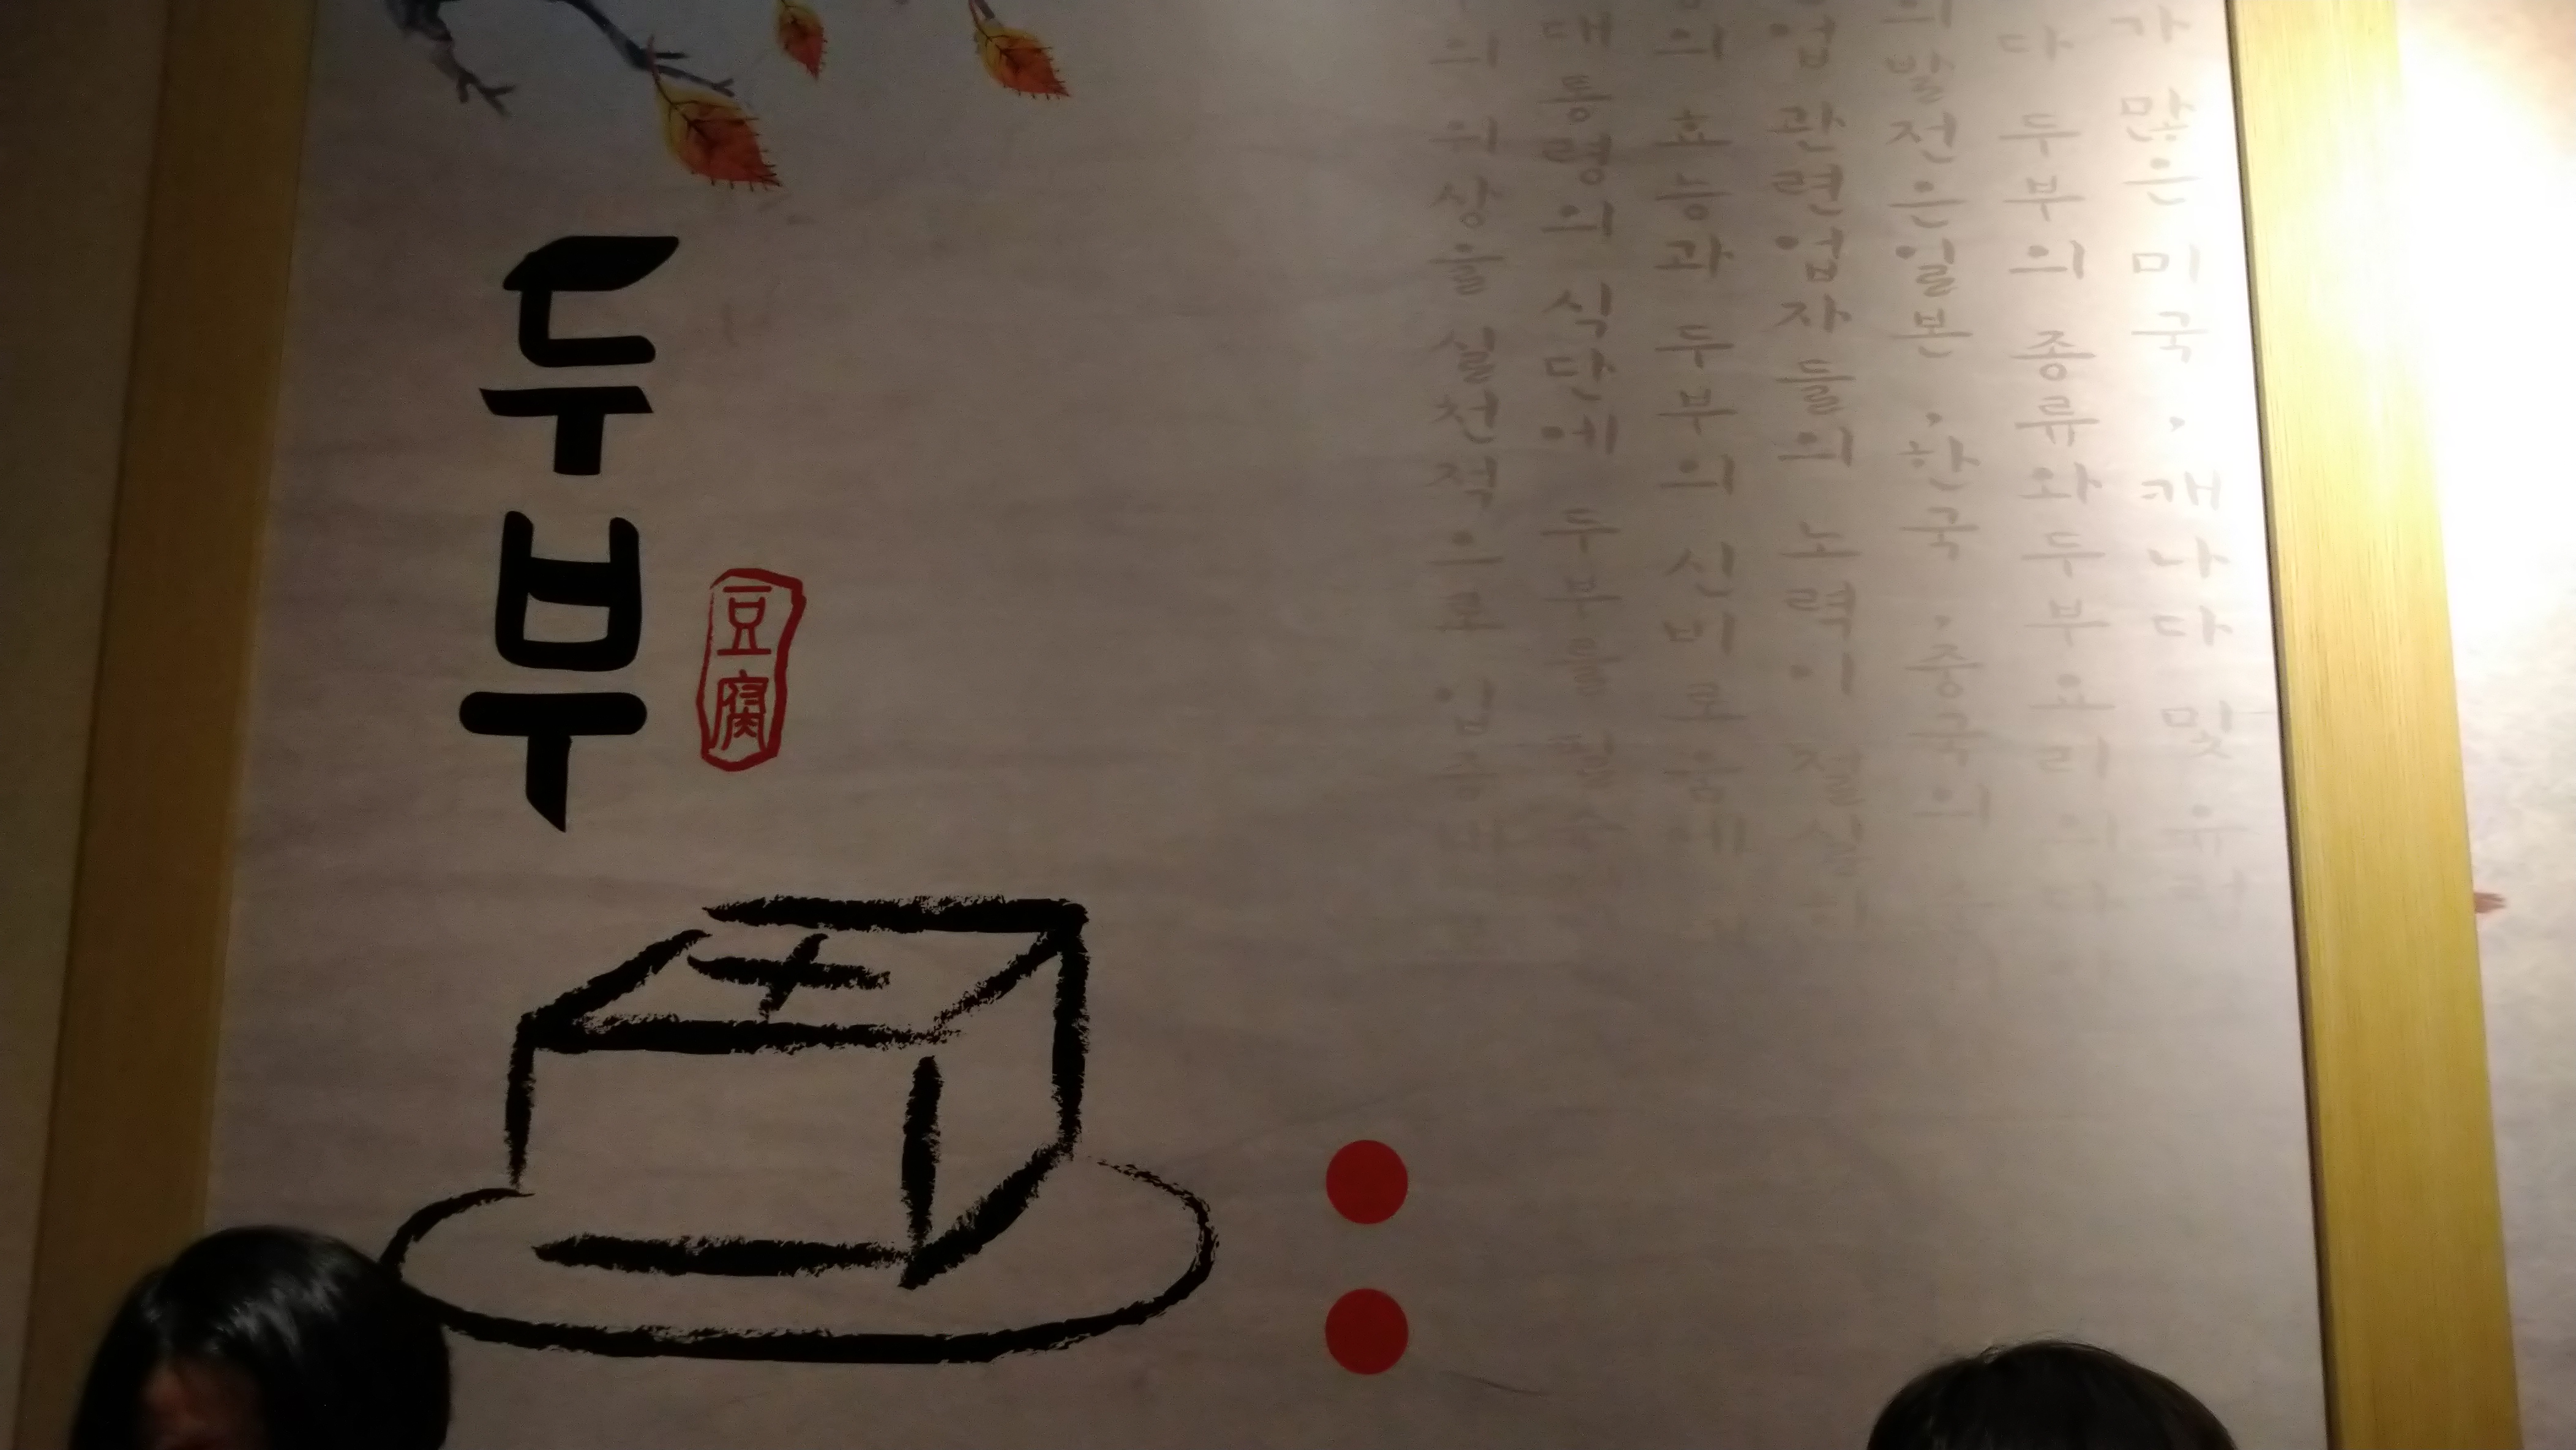 가 많은 미국·캐나다 및 유러
다 두부의 종류와 두부요리의 다
의 발전은일본·한국·중국의
업 관련업자들의 노력이 절실히
의 효능과 두부의 신비로움에
대통령의 식단에 두부를 필수
의 위상을 실천적으로 입증
두부
豆腐